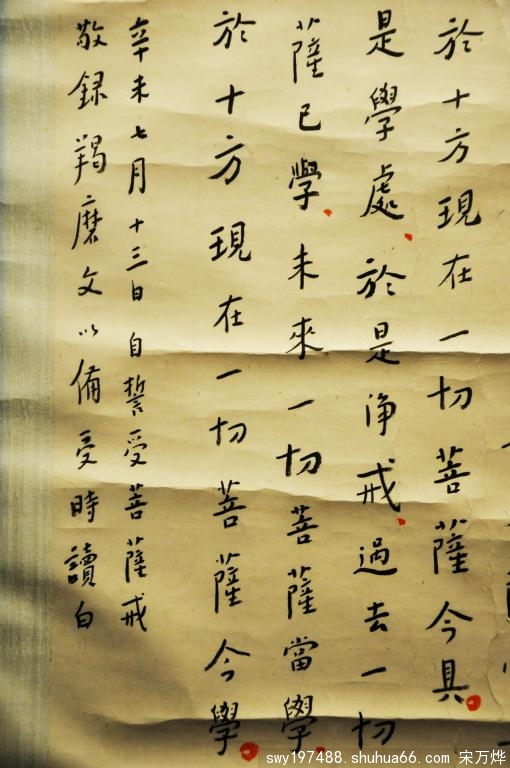 於十方現在一切菩薩今具
是學處於是淨戒過去一切
薩已學未來一切菩薩當學
於十方現在一切菩薩今學
辛未七月十三日自誓受菩薩戒
敬録羯磨文以備受時讀白
swy197488.shuhua66.com 宋万烨